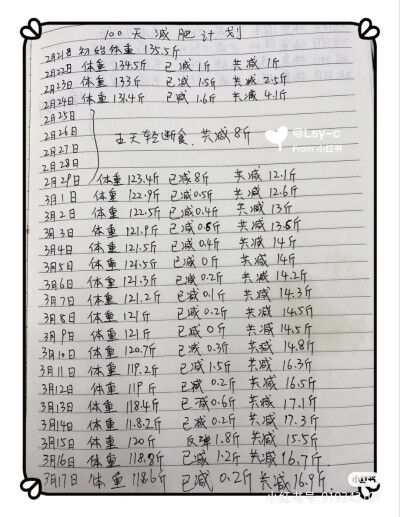 100天减肥计划
2月21日 初始体重 135.5斤
2月22日 体重 134.5斤 已减 1斤 共减 1斤
2月23日 体重 133斤 已减 1.5斤 共减 2.5斤
2月24日 体重 131.4斤 已减 1.6斤 共减 4.1斤
2月25日
2月26日
五天轻断食,共减8斤
2月27日
2月28日
2月29日 体重 123.4斤 已减8斤 共减 12.1斤
3月1日 体重 122.9斤 已减0.5斤 共减 12.6斤
3月2日 体重 122.5斤 已减0.4斤 共减 13斤
3月3日 体重 121.9斤 已减0.6斤 共减 13.6斤
3月4日 体重 121.5斤 已减0.4斤 共减 14斤
3月5日 体重 121.5斤 已减 0斤 共减 14斤
3月6日 体重 121.3斤 已减 0.2斤 共减 14.2斤
3月7日 体重 121.2斤 已减 0.1斤 共减 14.3斤
3月8日 体重 121斤 已减 0.2斤 共减 14.5斤
3月9日 体重 121斤 已减 0斤 共减 14.5斤
3月10日 体重 120.7斤 已减 0.3斤 共减 14.8斤
3月11日 体重 119.2斤 已减 1.5斤 共减 16.3斤
3月12日 体重 119斤 已减 0.2斤 共减 16.5斤
3月13日 体重 118.4斤 已减 0.6斤 共减 17.1斤
3月14日 体重 118.2斤 已减 0.2斤 共减 17.3斤
3月15日 体重 120斤 反弹 1.8斤 共减 15.5斤
3月16日 体重 118.8斤 已减 1.2斤 共减 16.7斤
3月17日 体重 118.6斤 已减 0.2斤 共减 16.9斤
@Lsy-c
From 小红书
小红书